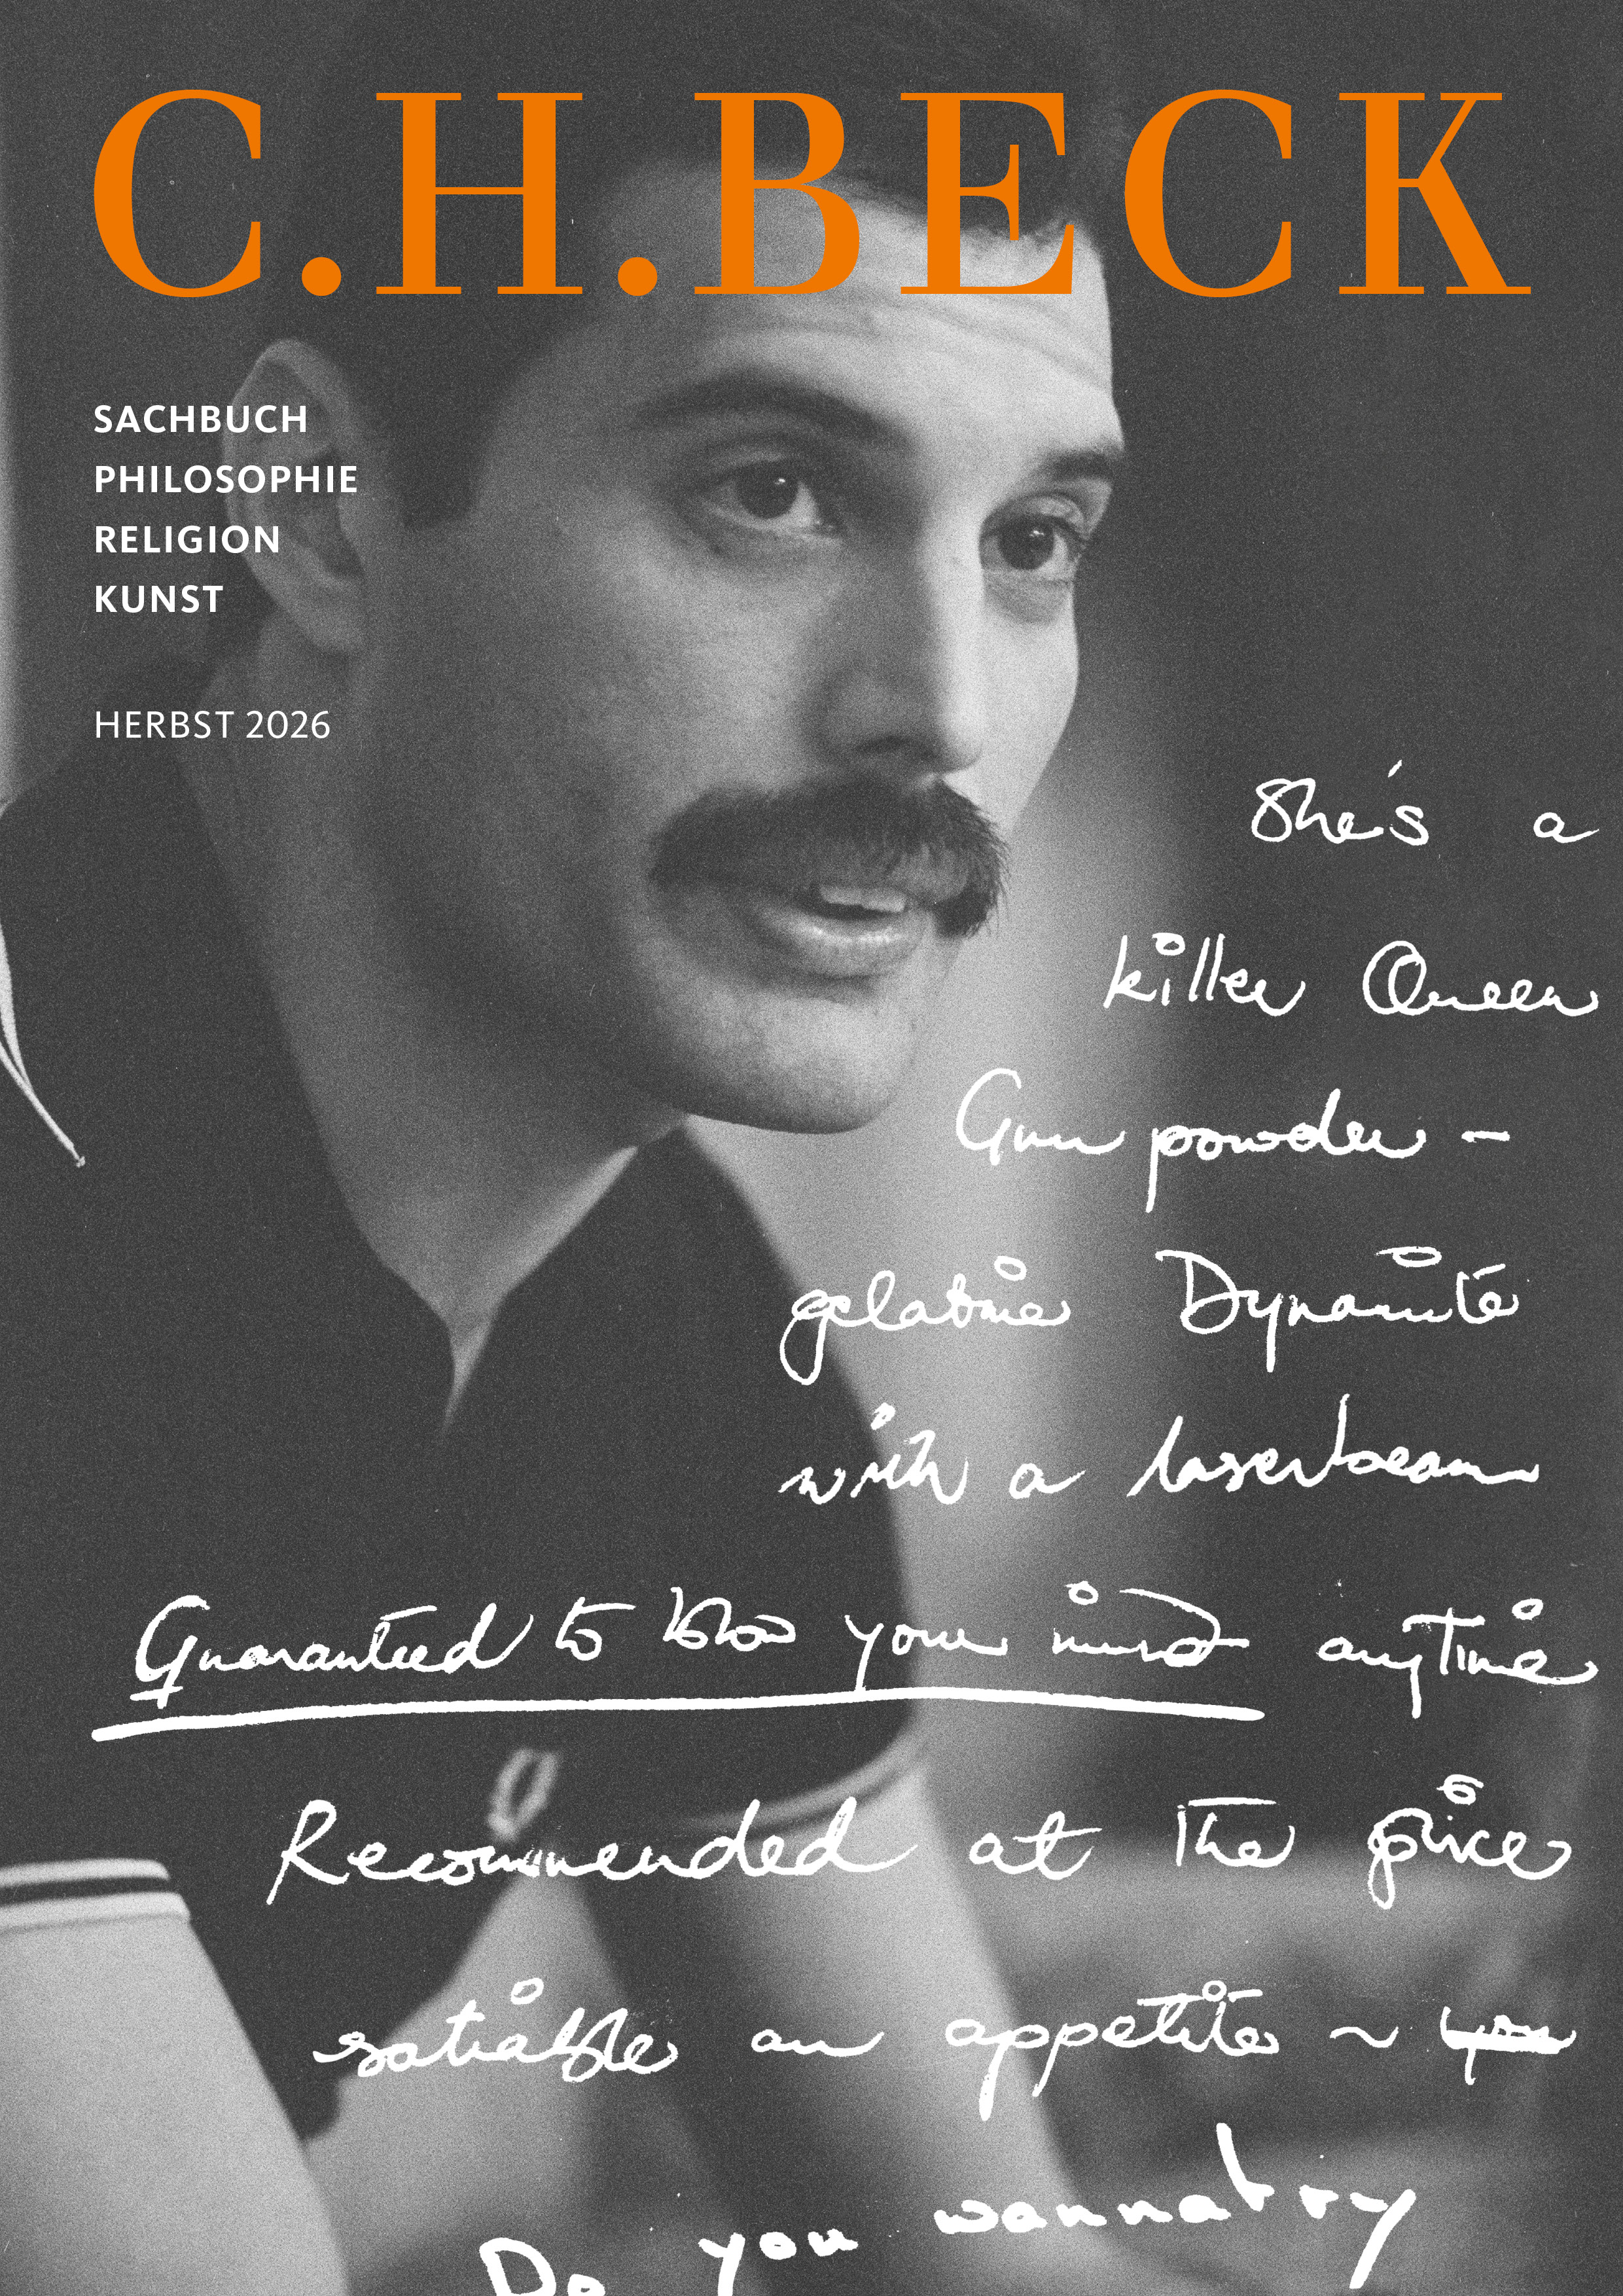 C.H.BECK
SACHBUCH
PHILOSOPHIE
RELIGION
KUNST
HERBST 2026
She's a
killer Queen
Gun powder –
gelatine Dynamite
with a laserbeam
Guaranteed to blow your mind anytime
Recommended at the price
satiable an appetite ~ you
Do you wanna try